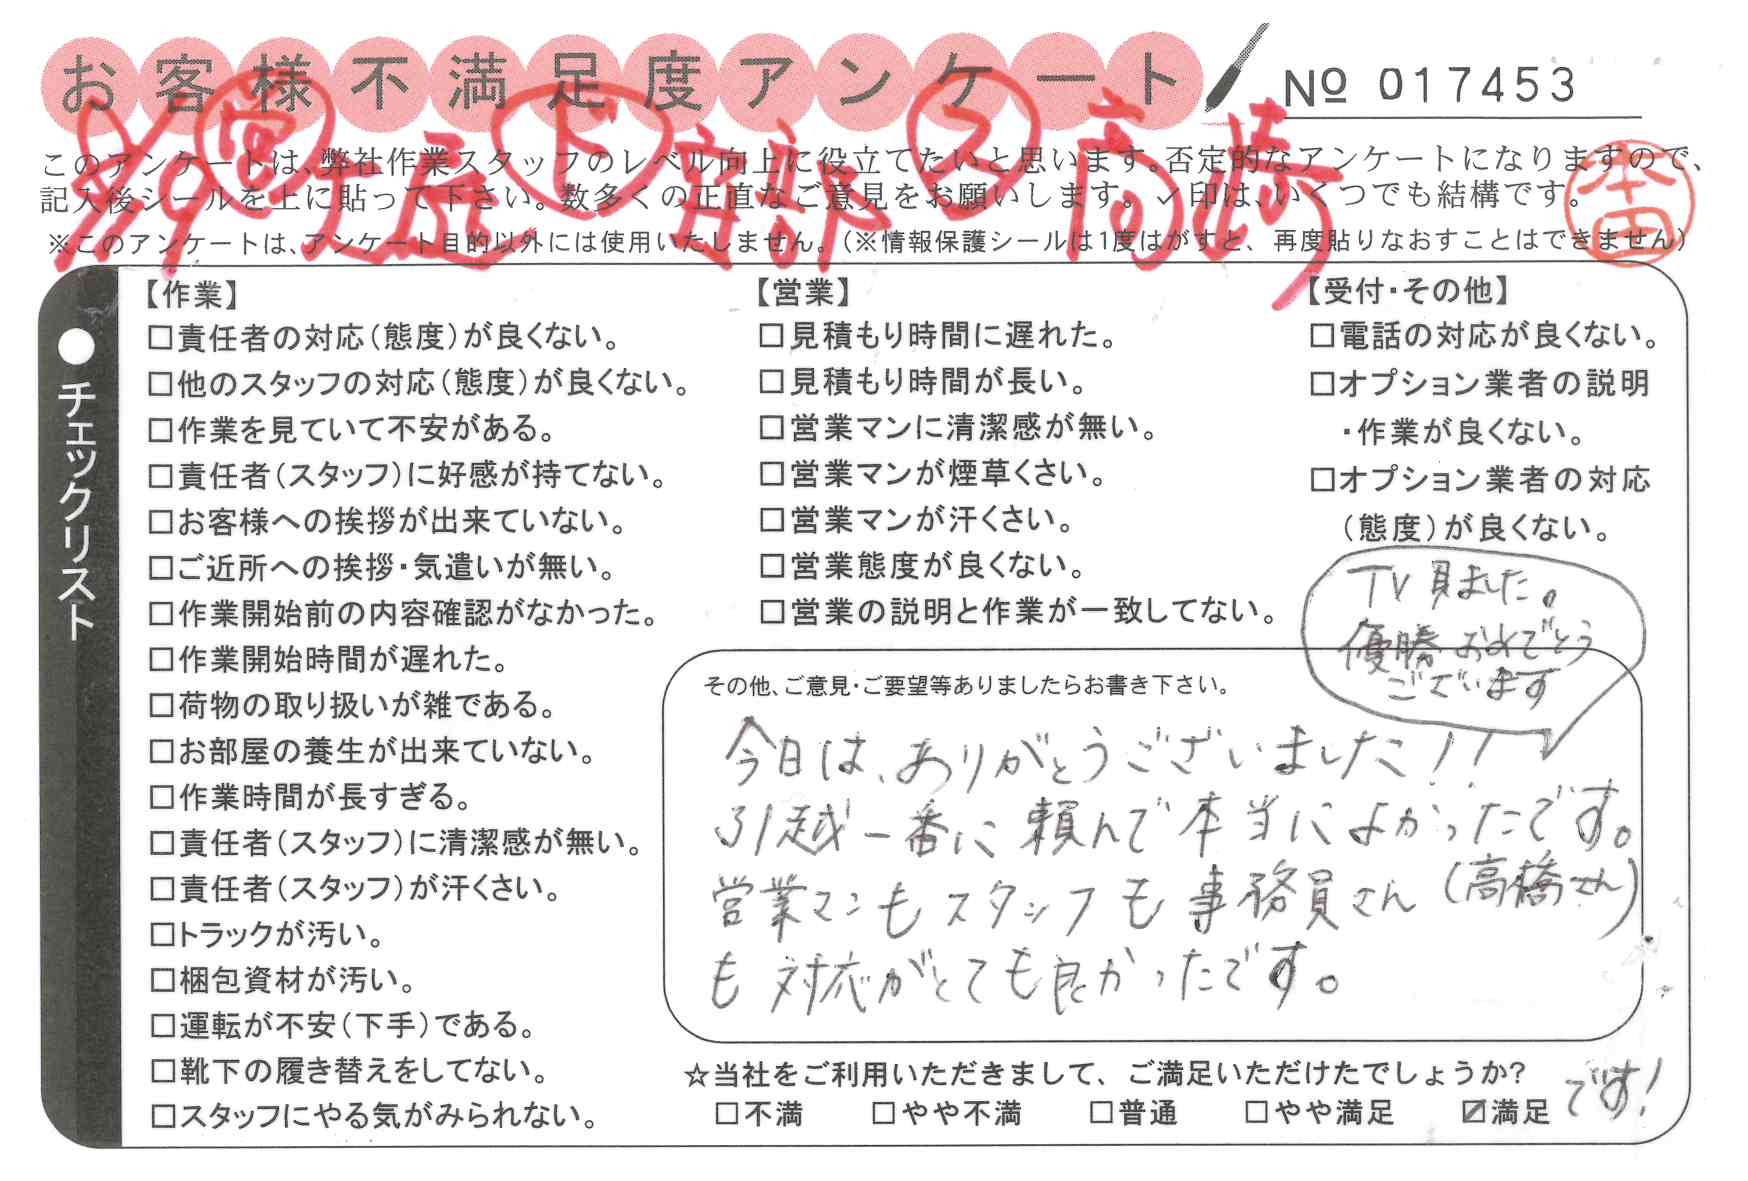 お客様不満足度アンケート
No 017453
このアンケートは、弊社作業スタッフのレベル向上に役立てたいと思います。否定的なアンケートになりますので、
記入後シールを上に貼って下さい。数多くの正直なご意見をお願いします。✓印は、いくつでも結構です。
※このアンケートは、アンケート目的以外には使用いたしません。(※情報保護シールは1度はがすと、再度貼りなおすことはできません)
営 ド 安部 ス 高崎
本田
●チェックリスト
【作業】
□責任者の対応(態度)が良くない。
□他のスタッフの対応(態度)が良くない。
□作業を見ていて不安がある。
□責任者(スタッフ)に好感が持てない。
□お客様への挨拶が出来ていない。
□ご近所への挨拶・気遣いが無い。
□作業開始前の内容確認がなかった。
□作業開始時間が遅れた。
□荷物の取り扱いが雑である。
□お部屋の養生が出来ていない。
□作業時間が長すぎる。
□責任者(スタッフ)に清潔感が無い。
□責任者(スタッフ)が汗くさい。
□トラックが汚い。
□梱包資材が汚い。
□運転が不安(下手)である。
□靴下の履き替えをしてない。
□スタッフにやる気がみられない。
【営業】
□見積もり時間に遅れた。
□見積もり時間が長い。
□営業マンに清潔感が無い。
□営業マンが煙草くさい。
□営業マンが汗くさい。
□営業態度が良くない。
□営業の説明と作業が一致してない。
【受付・その他】
□電話の対応が良くない。
□オプション業者の説明
・作業が良くない。
□オプション業者の対応
(態度)が良くない。
TV見ました。
優勝おめでとう
ございます
その他、ご意見・ご要望等ありましたらお書き下さい。
今日は、ありがとうございました!!
引越一番に頼んで本当によかったです。
営業マンもスタッフも事務員さん(高橋さん)
も対応がとても良かったです。
☆当社をご利用いただきまして、ご満足いただけたでしょうか?
□不満 □やや不満 □普通 □やや満足 ☑満足 です!